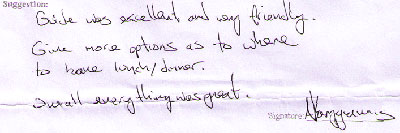 Suggestion:
Guide was excellent and very friendly.
Give more options as to where
to have lunch/dinner.
Overall everything was great.
Signature: